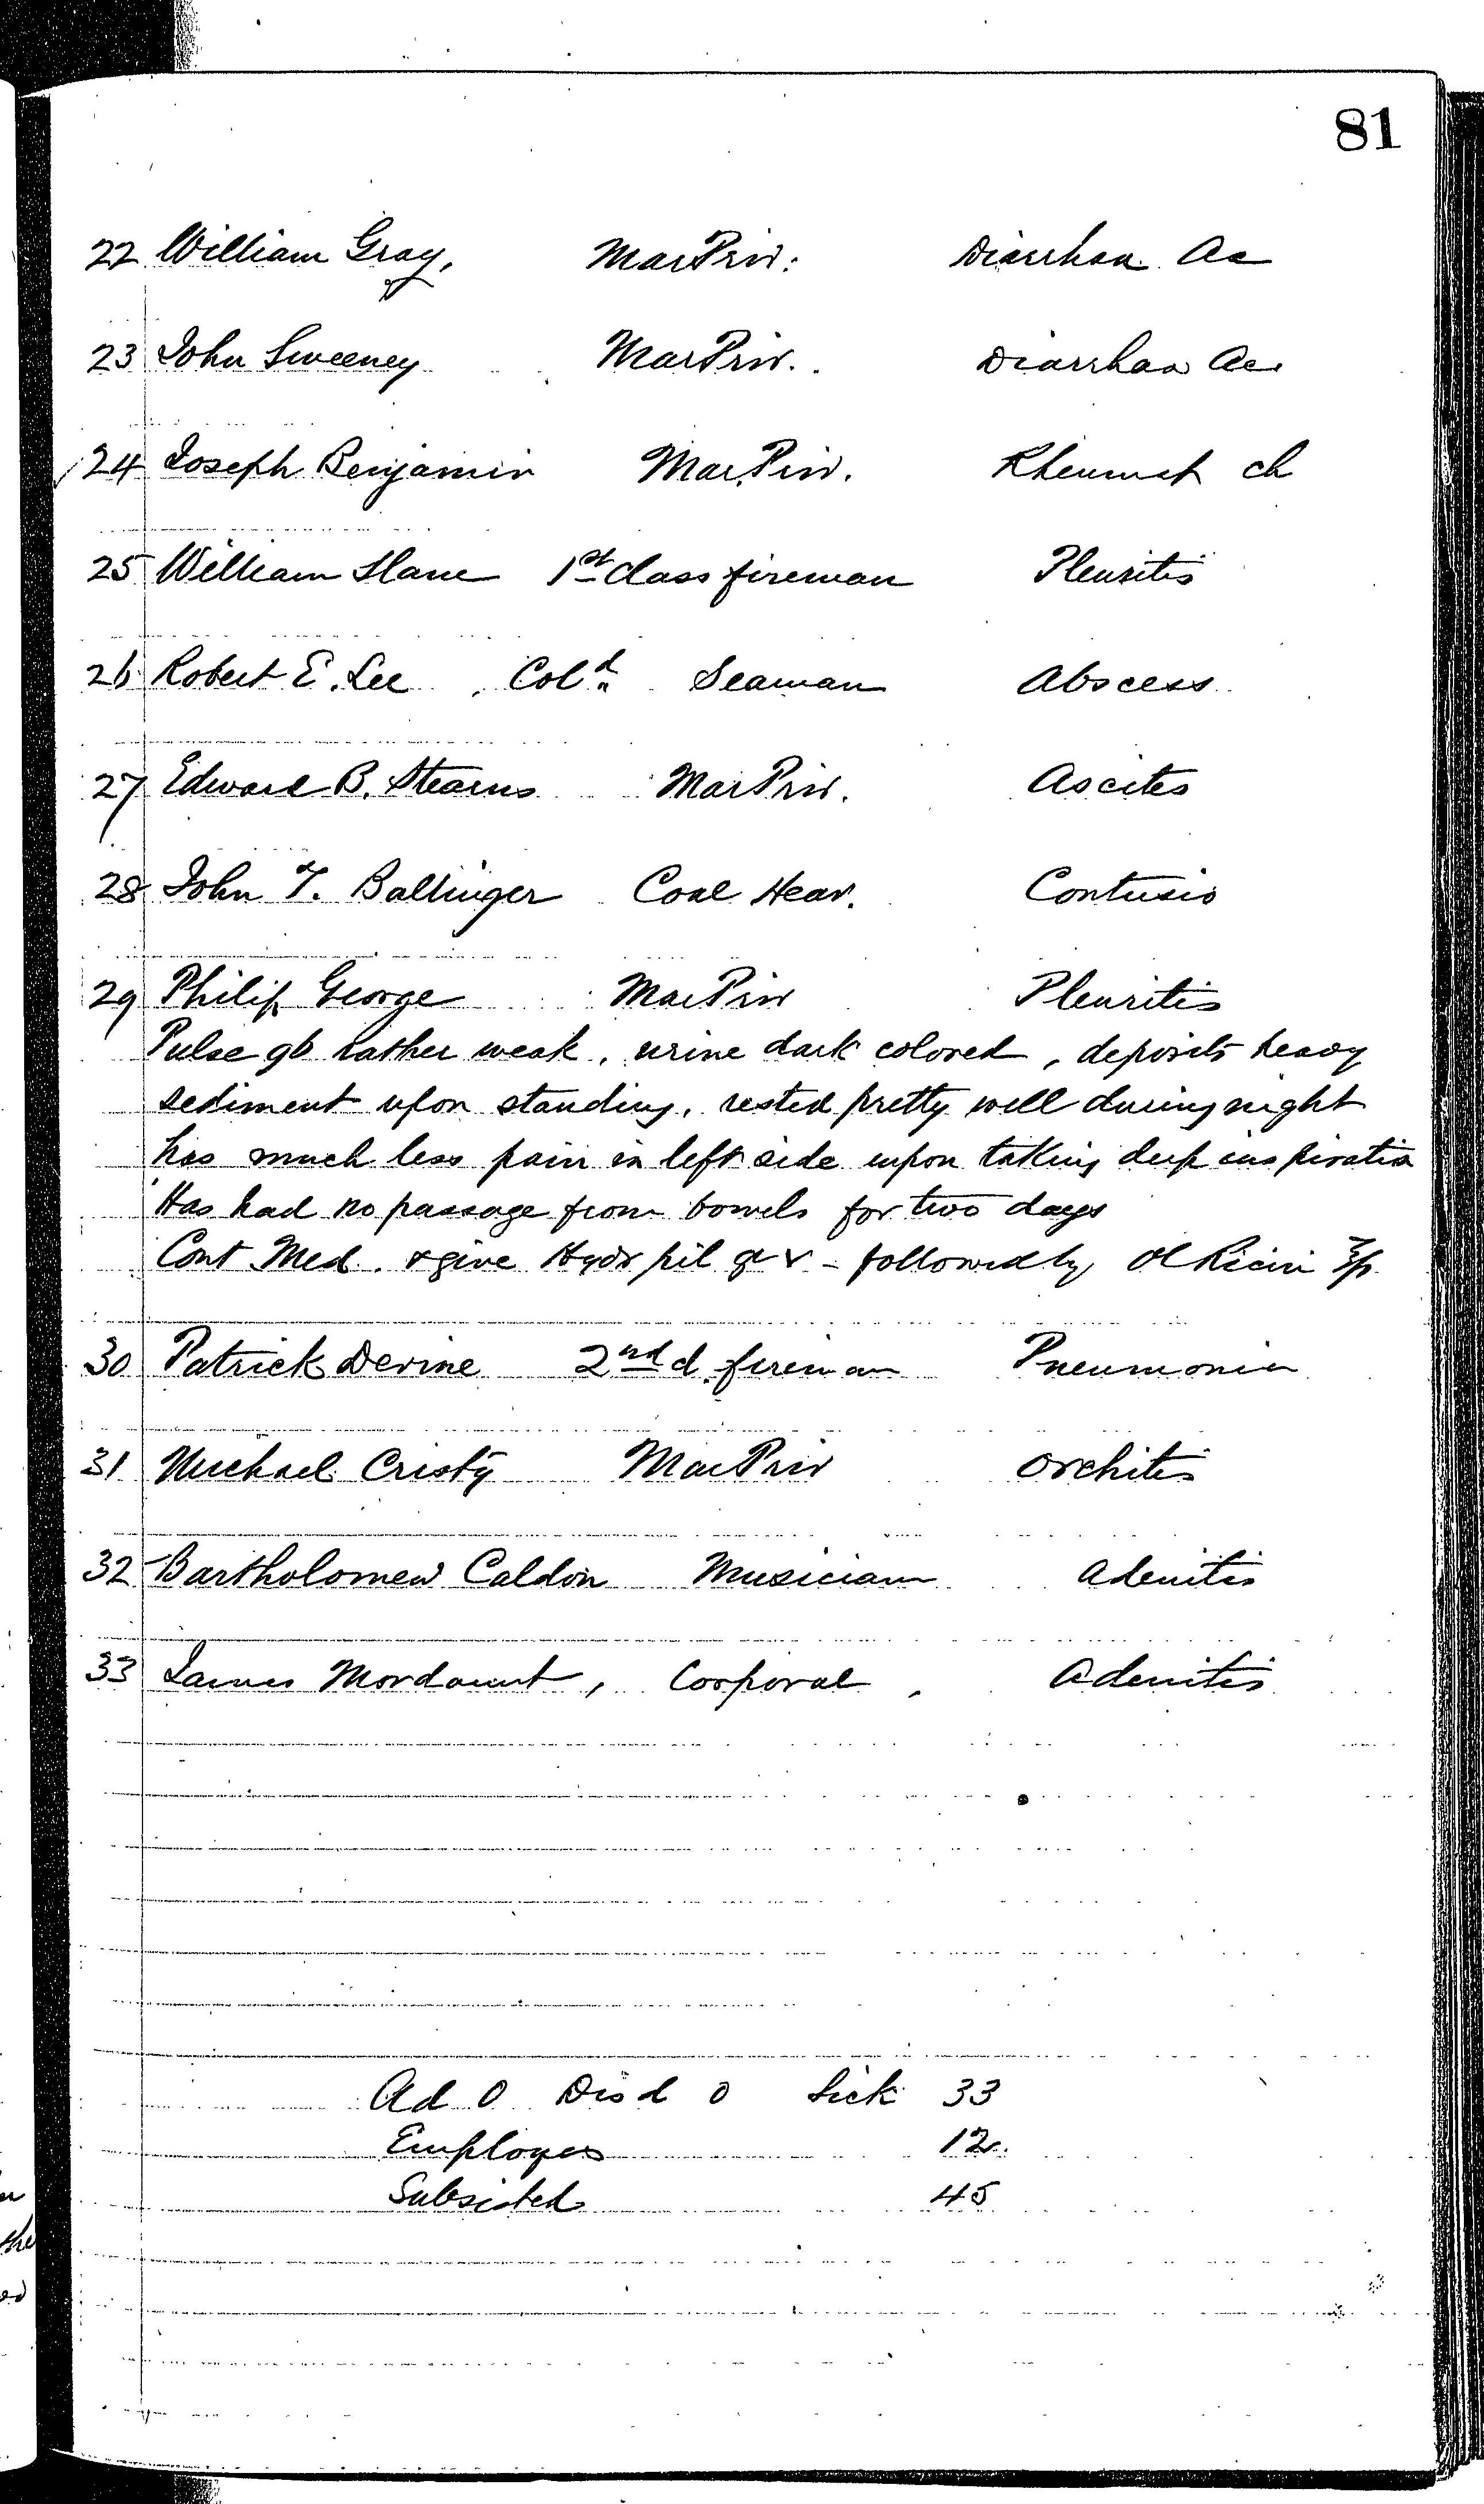 81
22 William Gray, Mar Priv: Diarrhœa Ac
23 John Sweeney Mar Priv. Diarrhœa Ac
24 Joseph Benjamin Mar. Priv. Rheumat ch
25 William Slane 1st Class fireman Pleuritis
26 Robert E. Lee Cold. Seaman Abscess
27 Edward B. Stearns Mar Priv. Ascites
28 John T. Ballinger Coal Heav. Contusio
29 Philip George Mar Priv Pleuritis
Pulse 96 rather weak, urine dark colored, deposits heavy
sediment upon standing, rested pretty well during night
has much less pain in left side upon taking deep inspiratio
Has had no passage from bowels for two days
Cont Med. & give Hydr pil gr v - followed by Ol Ricini
30 Patrick Devine 2nd cl. fireman Pneumonia
31 Michael Cristy Mar Priv Orchitis
32 Bartholomew Caldon Musician Adenitis
33 James Mordaunt, Corporal, Adenitis
Ad 0 Disd 0 Sick 33
Employes 12
Subsisted 45